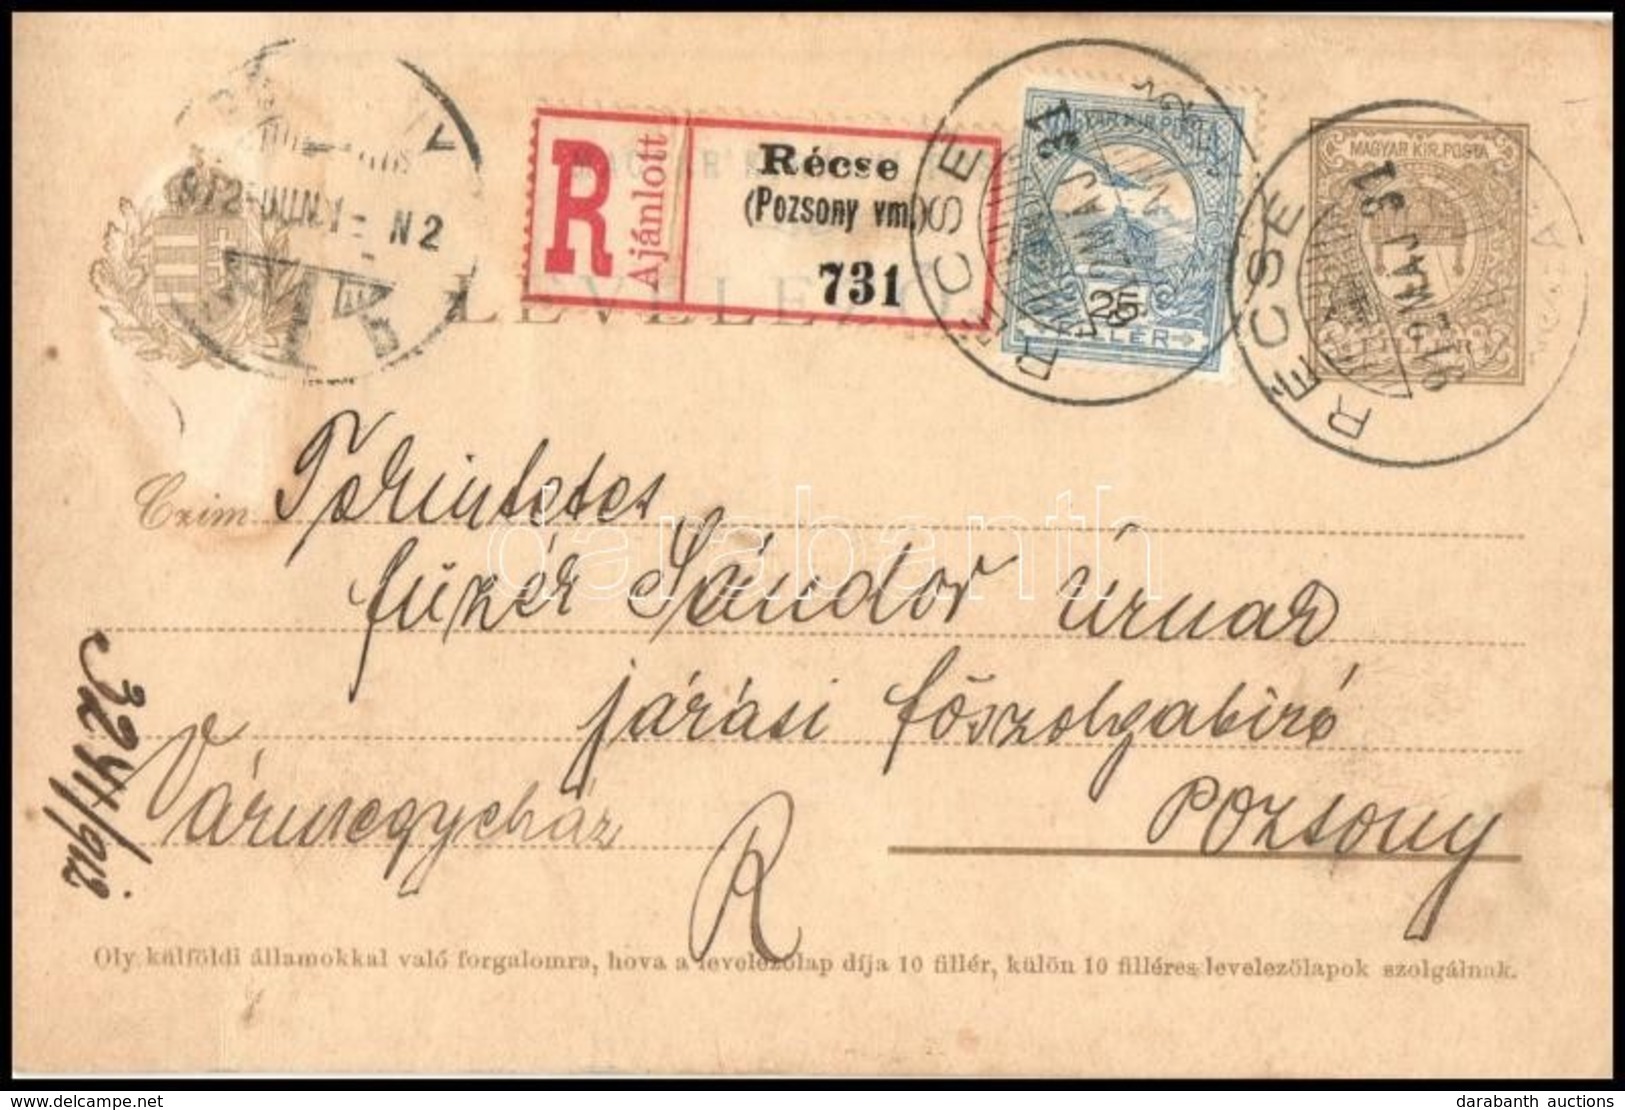 912 JUN. 1 N2
R
Ajánlott
Récse
(Pozsony vm.)
731
RÉCSE
912 MÁJ 31
MAGYAR KIR. POSTA
25
FILLÉR
RÉCSE
912 MÁJ 31
MAGYAR KIR. POSTA
FILLÉR
MAGYAR
LEVELEZŐ
Czim
Tekintetes
Sándor úrnak
járási főszolgabiró
Vármegyeház
Pozsony
R
3244/912
Oly külföldi államokkal való forgalomra, hova a levelezőlap díja 10 fillér, külön 10 filléres levelezőlapok szolgálnak.
darabanth
www.delcampe.net
darabanth auctions